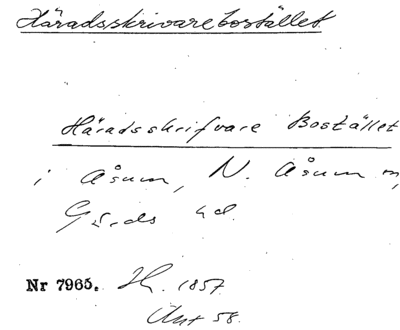 Häradsskrivarebostället.
Häradsskrifvare Bostället
i Åsum, N. Åsum sn,
Gärds hd.
Nr 7965. H. 1857
Akt 58.